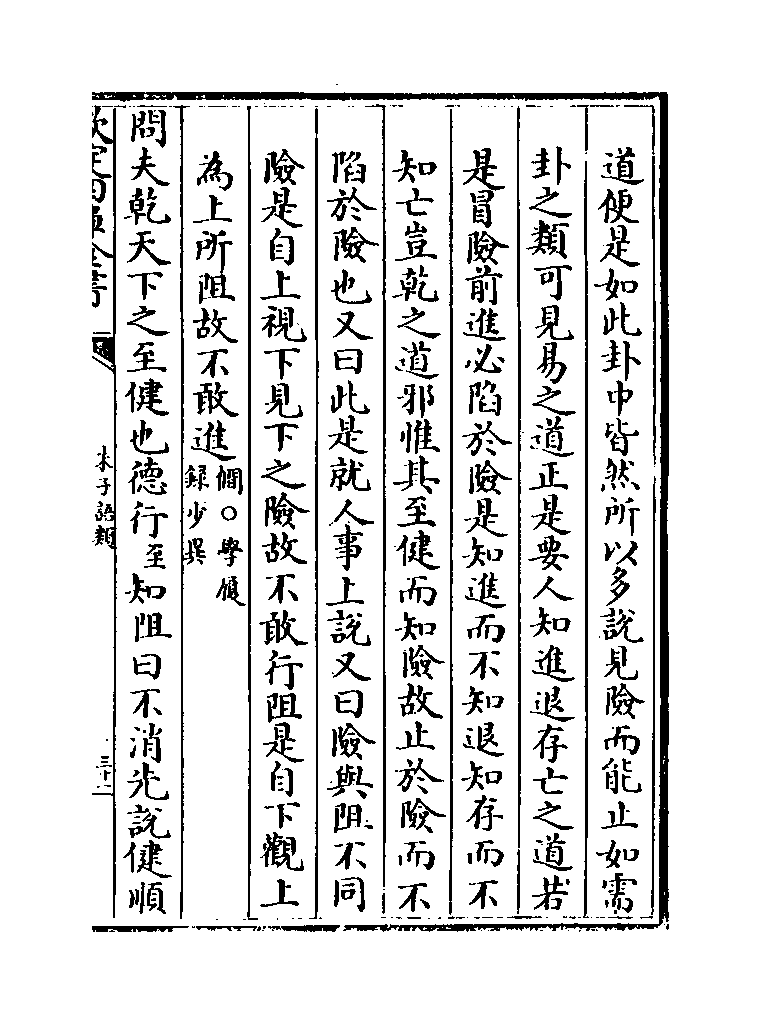 道便是如此卦中皆然所以多說見險而能止如需
卦之類可見易之道正是要人知進退存亡之道若
是冒險前進必陷於險是知進而不知退知存而不
知亡豈乾之道邪惟其至健而知險故止於險而不
陷於險也又曰此是就人事上說又曰險與阻不同
險是自上視下見下之險故不敢行阻是自下觀上
為上所阻故不敢進僩○學履
錄少異
問夫乾天下之至健也德行至知阻曰不消先說健順
欽定四庫全書
朱子語類
三十二